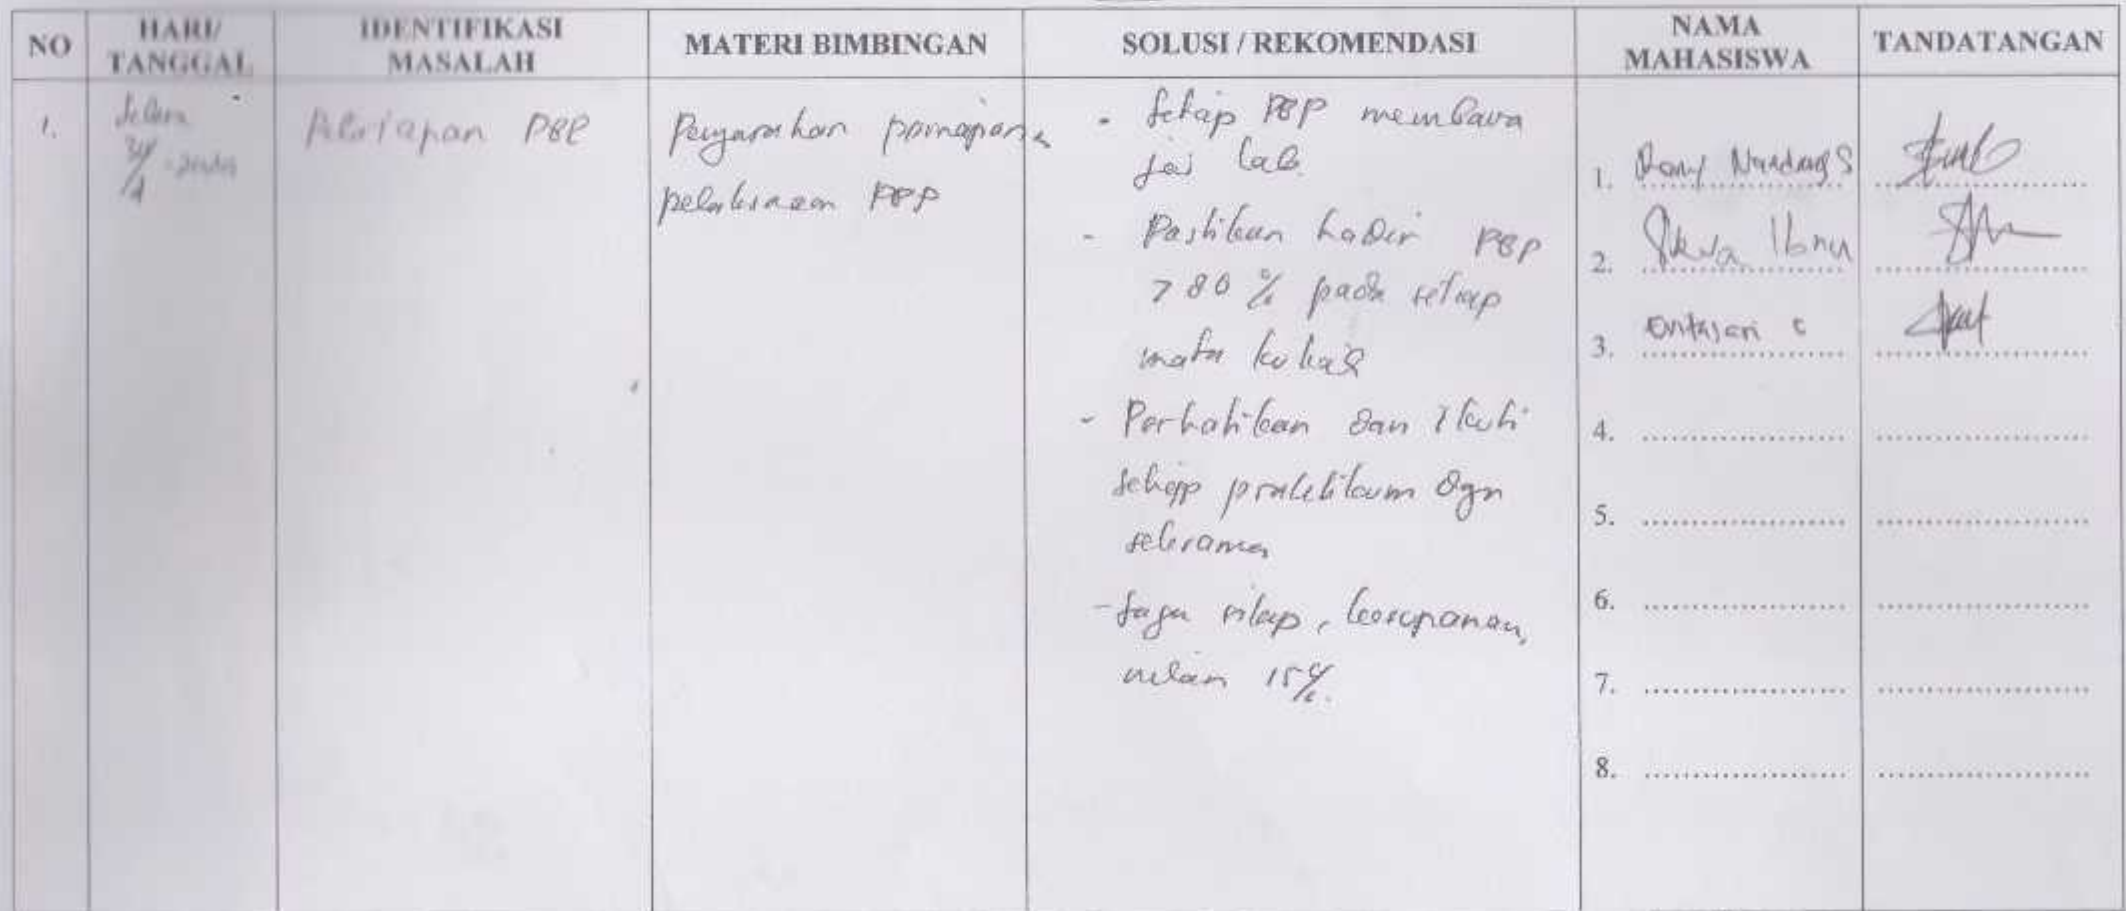 NO
HARI/
TANGGAL
IDENTIFIKASI
MASALAH
MATERI BIMBINGAN
SOLUSI / REKOMENDASI
NAMA
MAHASISWA
TANDATANGAN
1.
Selasa
PBP
Pengarahan
pelaksanaan PBP
- Setiap PBP membawa
jas lab
- Pastikan hadir PBP
> 80 % pada setiap
mata kuliah
- Perhatikan dan ikuti
setiap praktikum dgn
seksama
- Jaga sikap, kesopanan,
15%.
1. Dony S
2. Ibnu
3.
4.
5.
6.
7.
8.